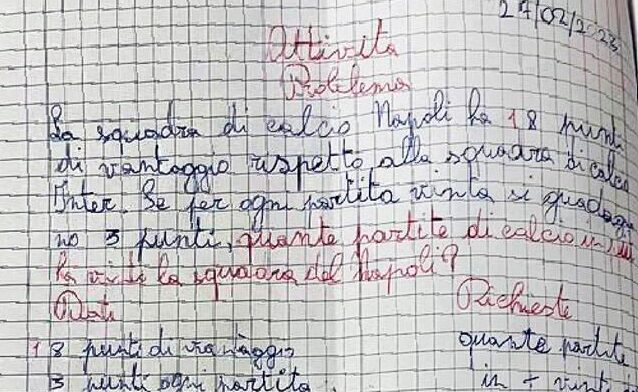 27/02/2023
Attività
Problema
La squadra di calcio Napoli ha 18 punti
di vantaggio rispetto alla squadra di calcio
Inter. Se per ogni partita vinta si guadagna
no 3 punti, quante partite di calcio in più
ha vinto la squadra del Napoli?
Dati
Richieste
18 punti di vantaggio
quante partite
3 punti ogni partita
in + vinti